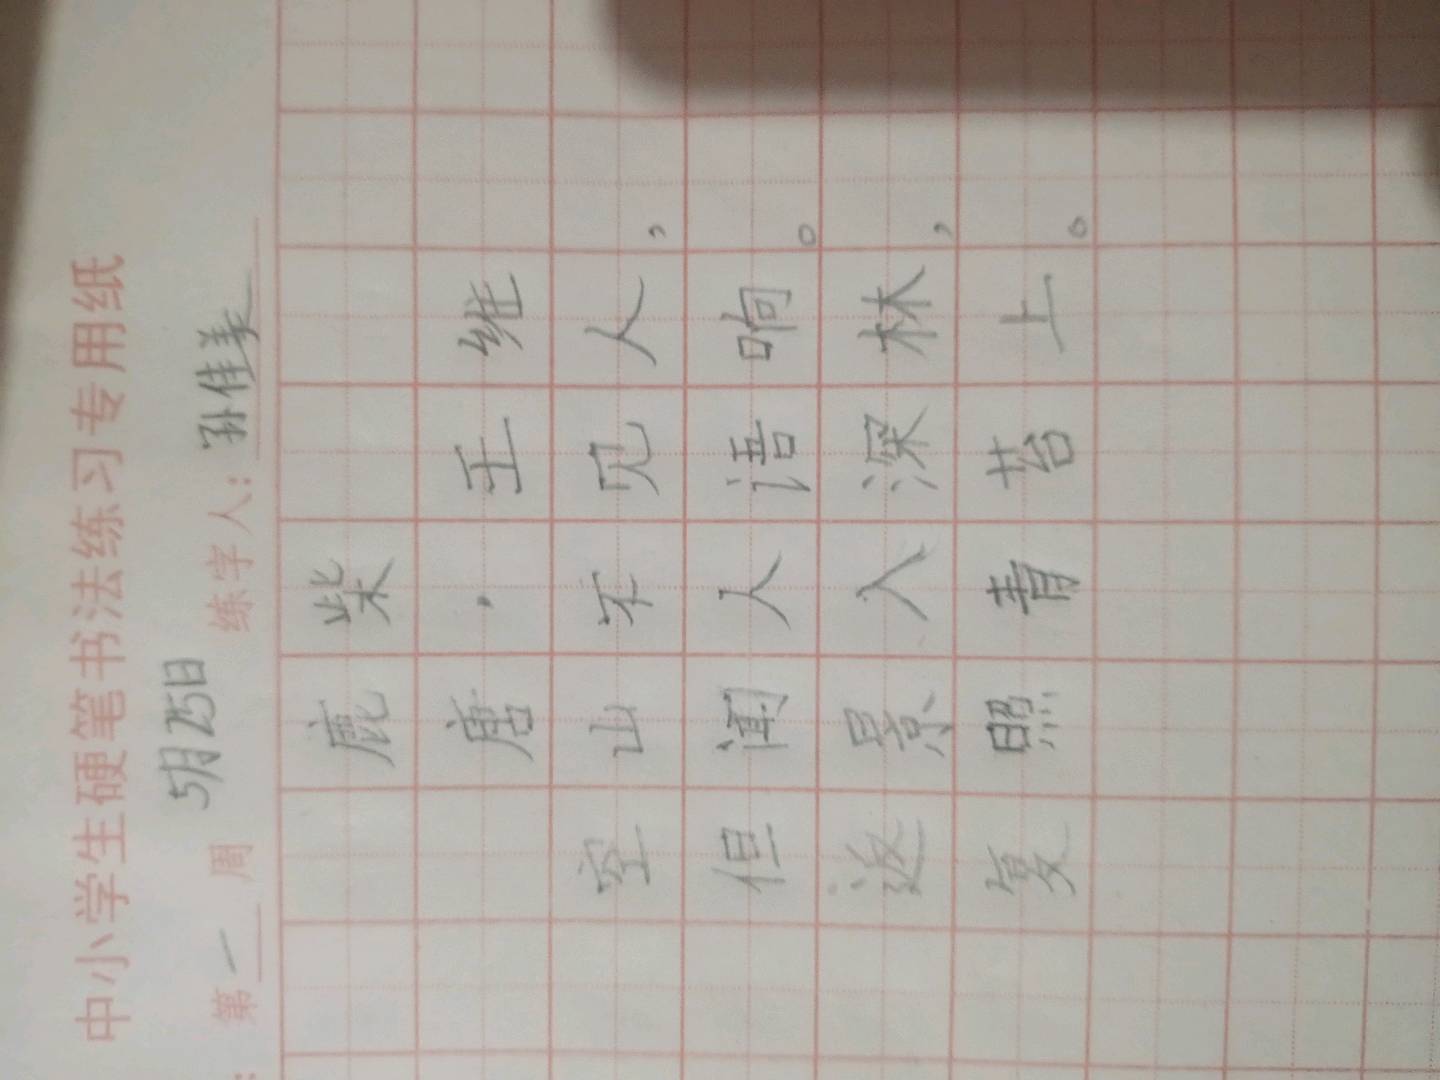 中小学生硬笔书法练习专用纸
5月25日
第一周 练字人：孙佳美
鹿柴
唐·王维
空山不见人，
但闻人语响。
返景入深林，
复照青苔上。